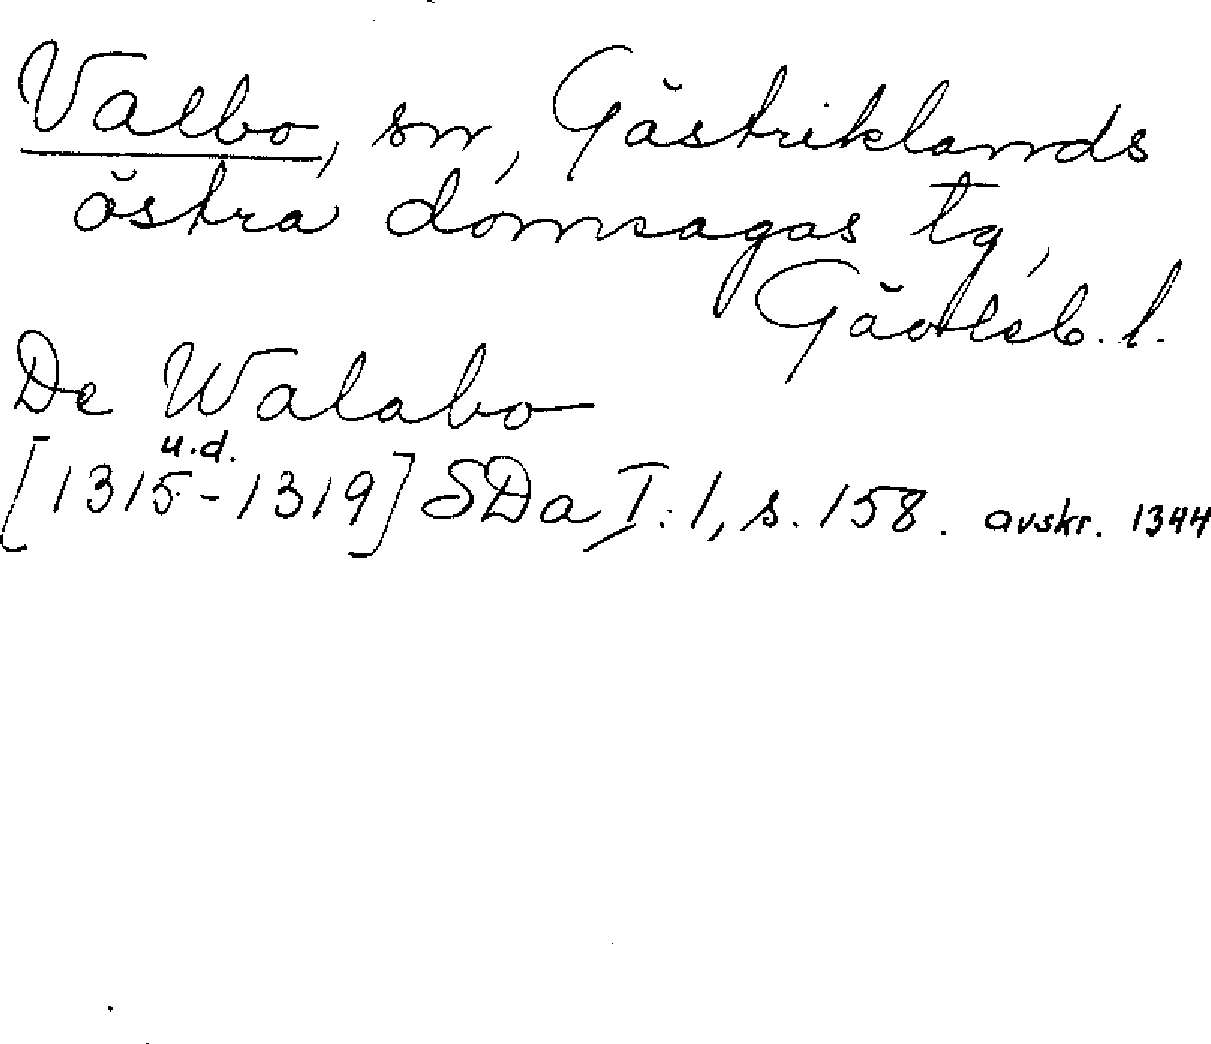 Valbo, sn, Gästriklands
östra domsagas tg,
Gävleb. l.
De Walabo
u.d.
[1315-1319] SDa I:1, s. 158. avskr. 1344